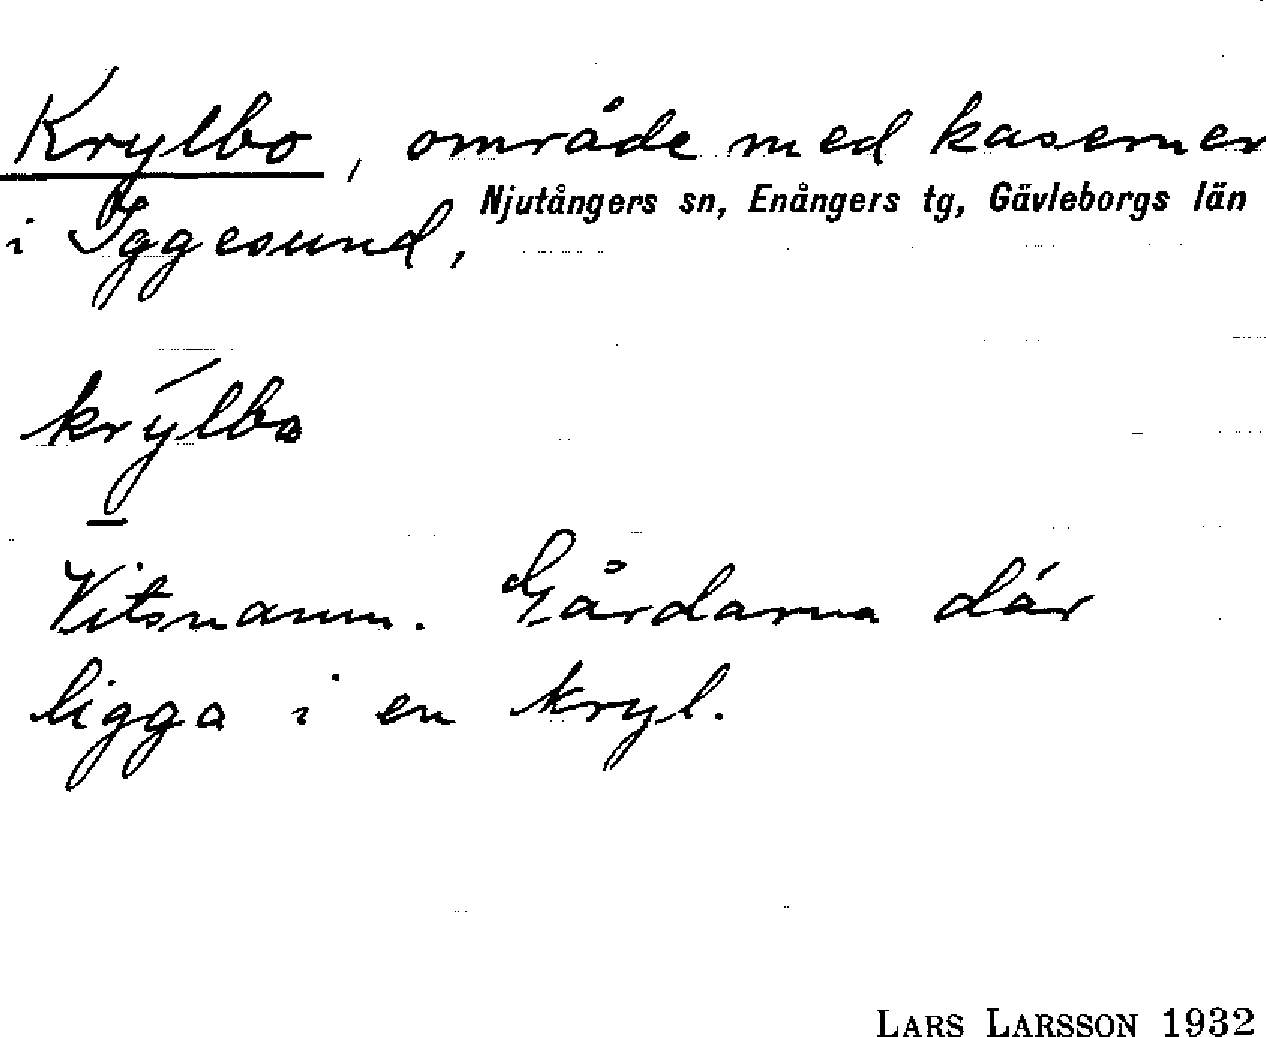 Krylbo, område med kaserner
Njutångers sn, Enångers tg, Gävleborgs län
i Iggesund,
krýlbo
Vitsnamn. Gårdarna där
ligga i en kryl.
LARS LARSSON 1932